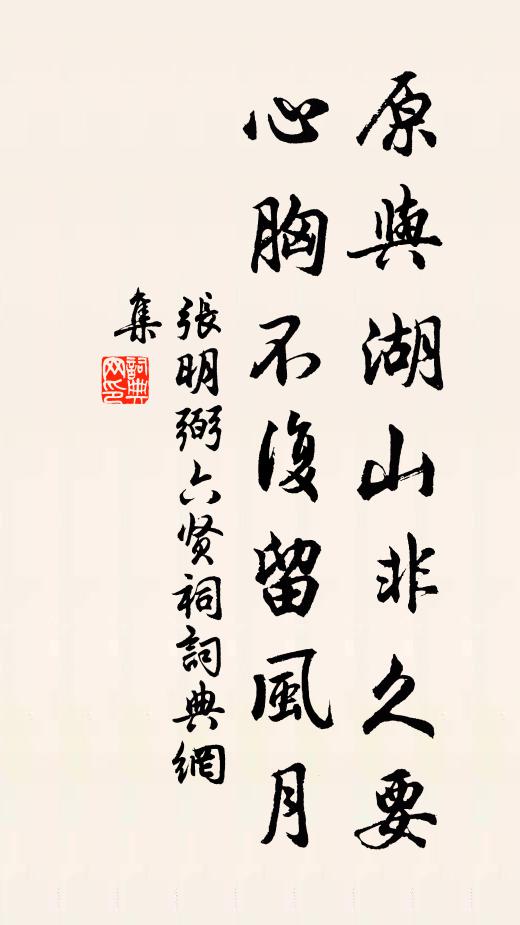 原與湖山非久要
心胸不復留風月
張明弼六贤祠詞典網
集
詞典网印